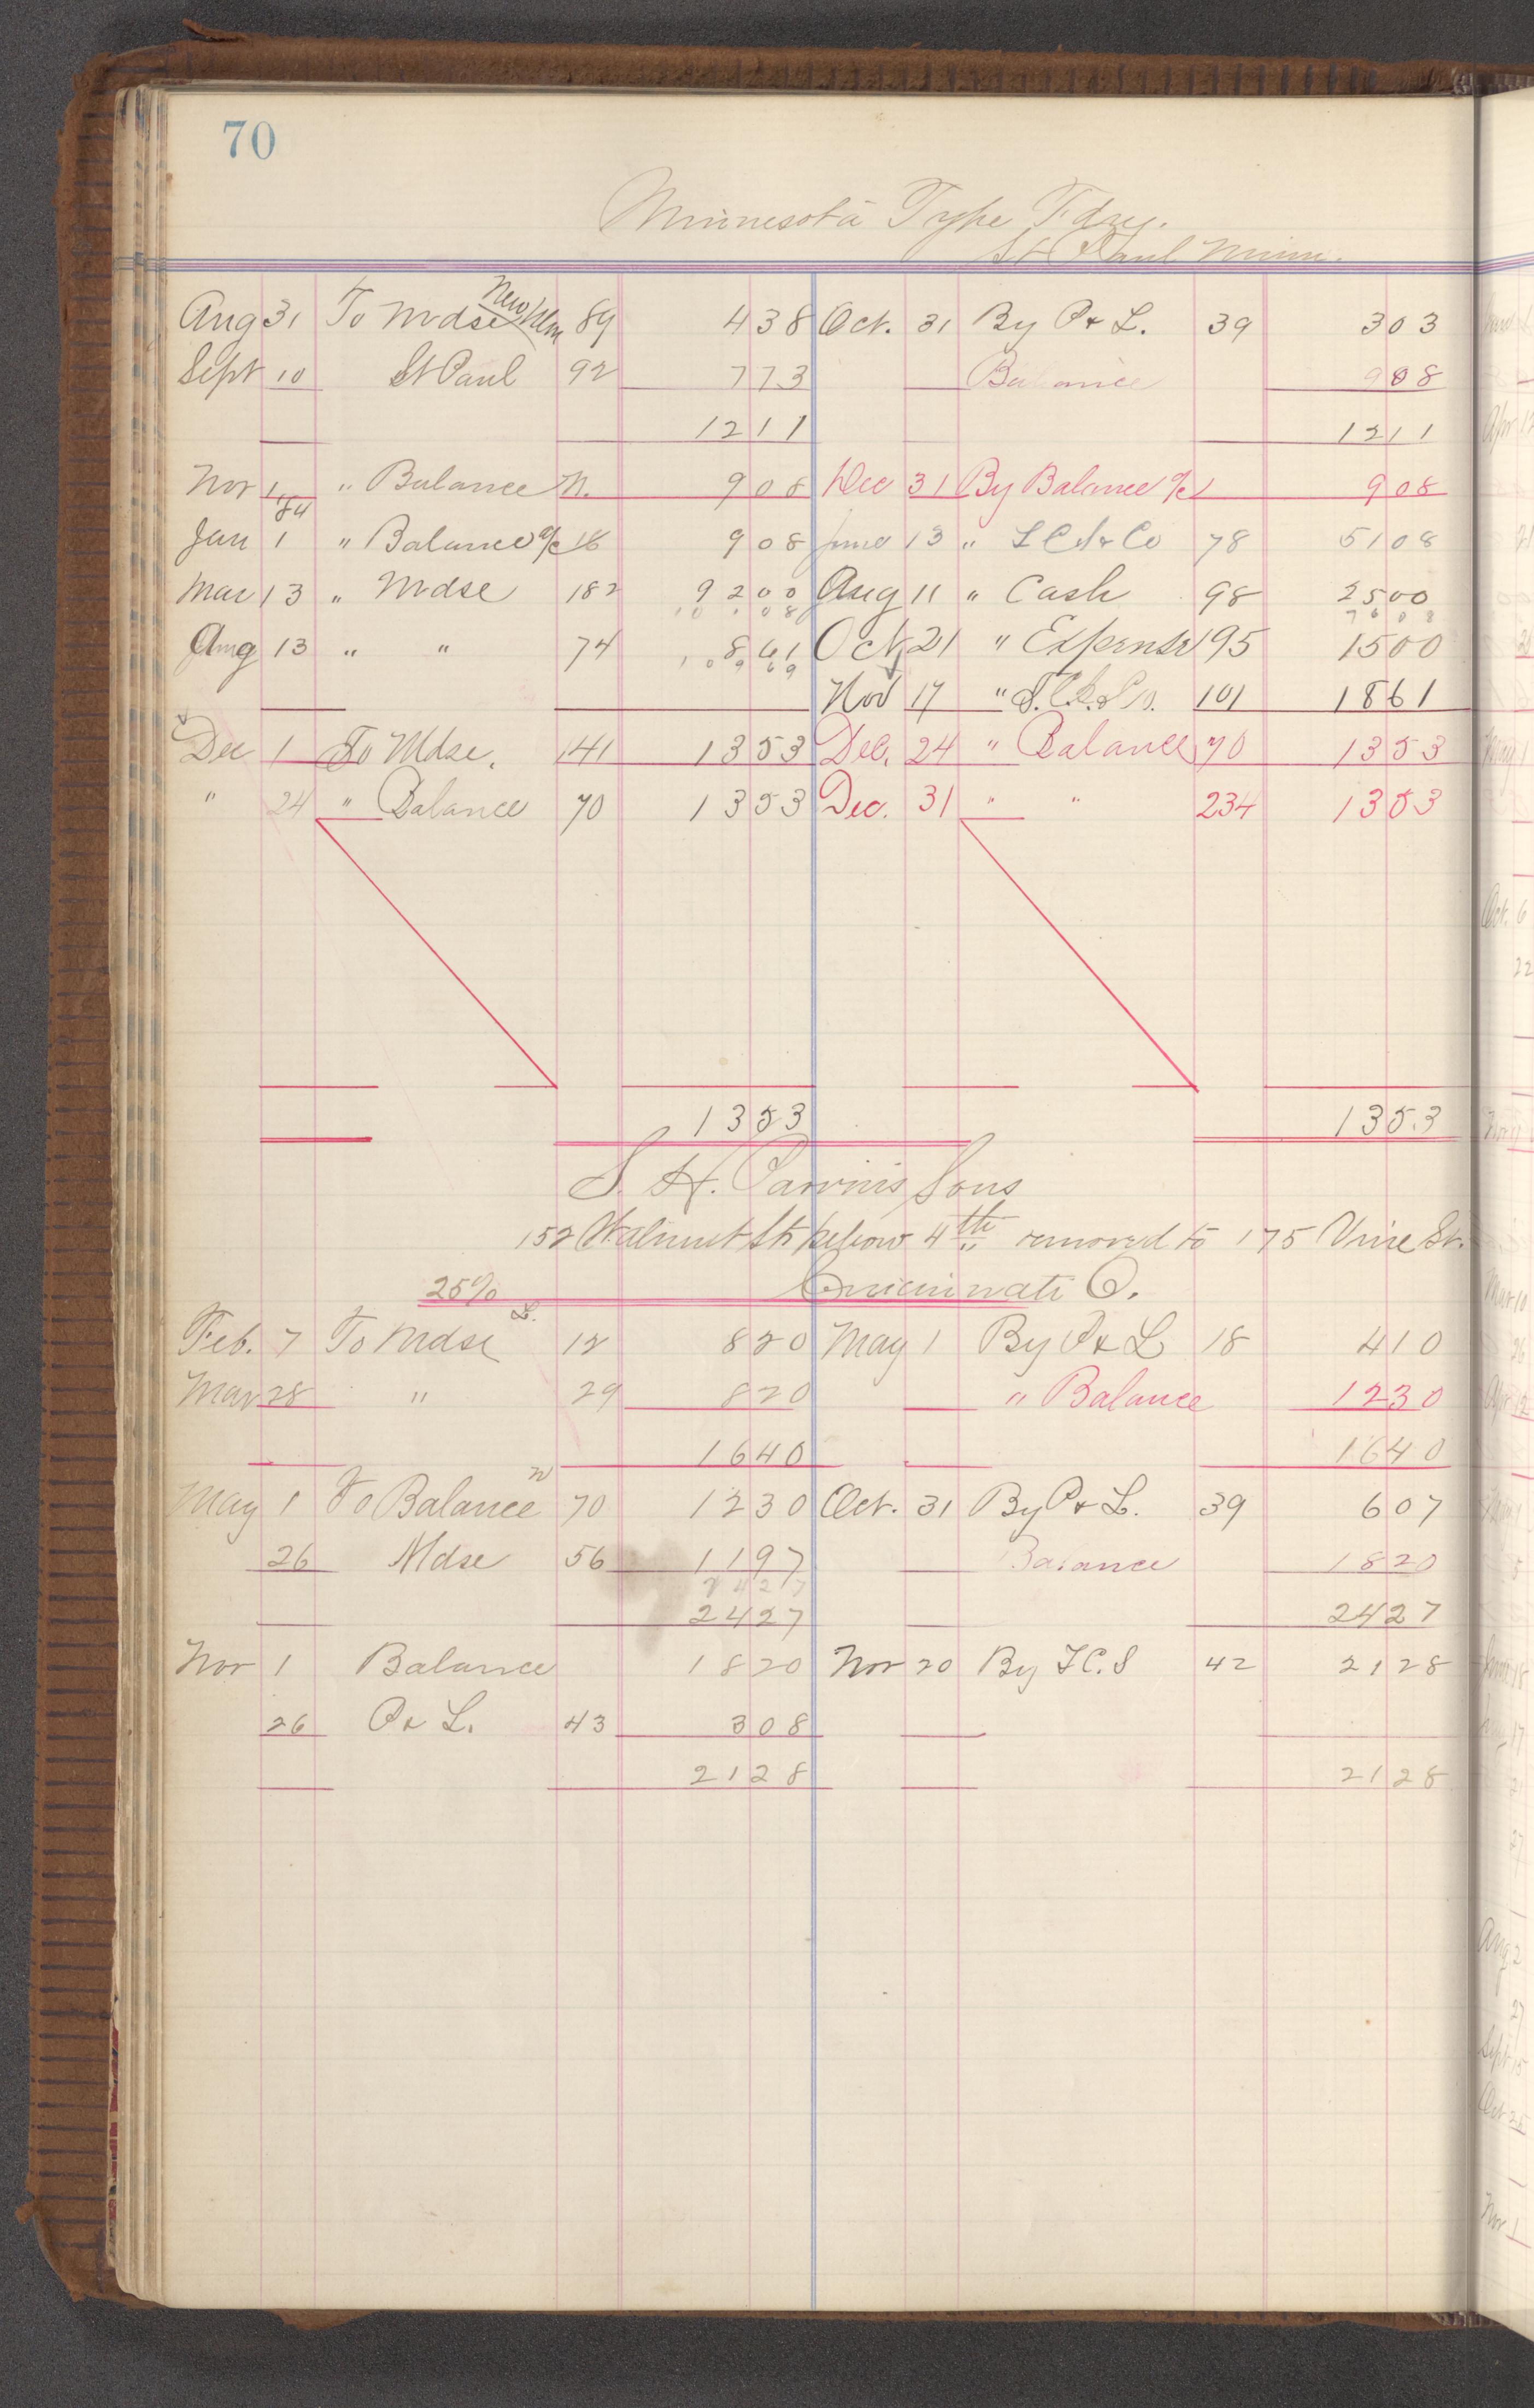 70
Minnesota Type Fdry.
St Paul Minn.
Aug 31 To Mdse New Ulm 89 438 Oct. 31 By P & L. 39 303
Sept 10 St Paul 92 773 Balance 908
1211 1211
Nov 1 " Balance N. 908 Dec 31 By Balance % 908
'84
Jan 1 " Balance % 16 908 June 13 " 78 5108
Mar 13 " Mdse 182 9200 Aug 11 " Cash 98 2500
10108 7608
Aug 13 " " 74 861 Oct 21 " Expense 195 1500
10969
Nov 17 " 101 1861
Dec 1 To Mdse. 141 1353 Dec. 24 " Balance 70 1353
" 24 " Balance 70 1353 Dec. 31 " " 234 1353
1353 1353
S. H. Parvin's Sons
152 Walnut St below 4th removed to 175 Vine St.
25% Cincinnati O.
Feb. 7 To Mdse L. 12 820 May 1 By P & L 18 410
Mar 28 " 29 820 " Balance 1230
1640 1640
May 1 To Balance N 70 1230 Oct. 31 By P & L. 39 607
26 Mdse 56 1197 Balance 1820
2427
2427 2427
Nov 1 Balance 1820 Nov 20 By F.C.S 42 2128
26 P & L. 43 308
2128 2128